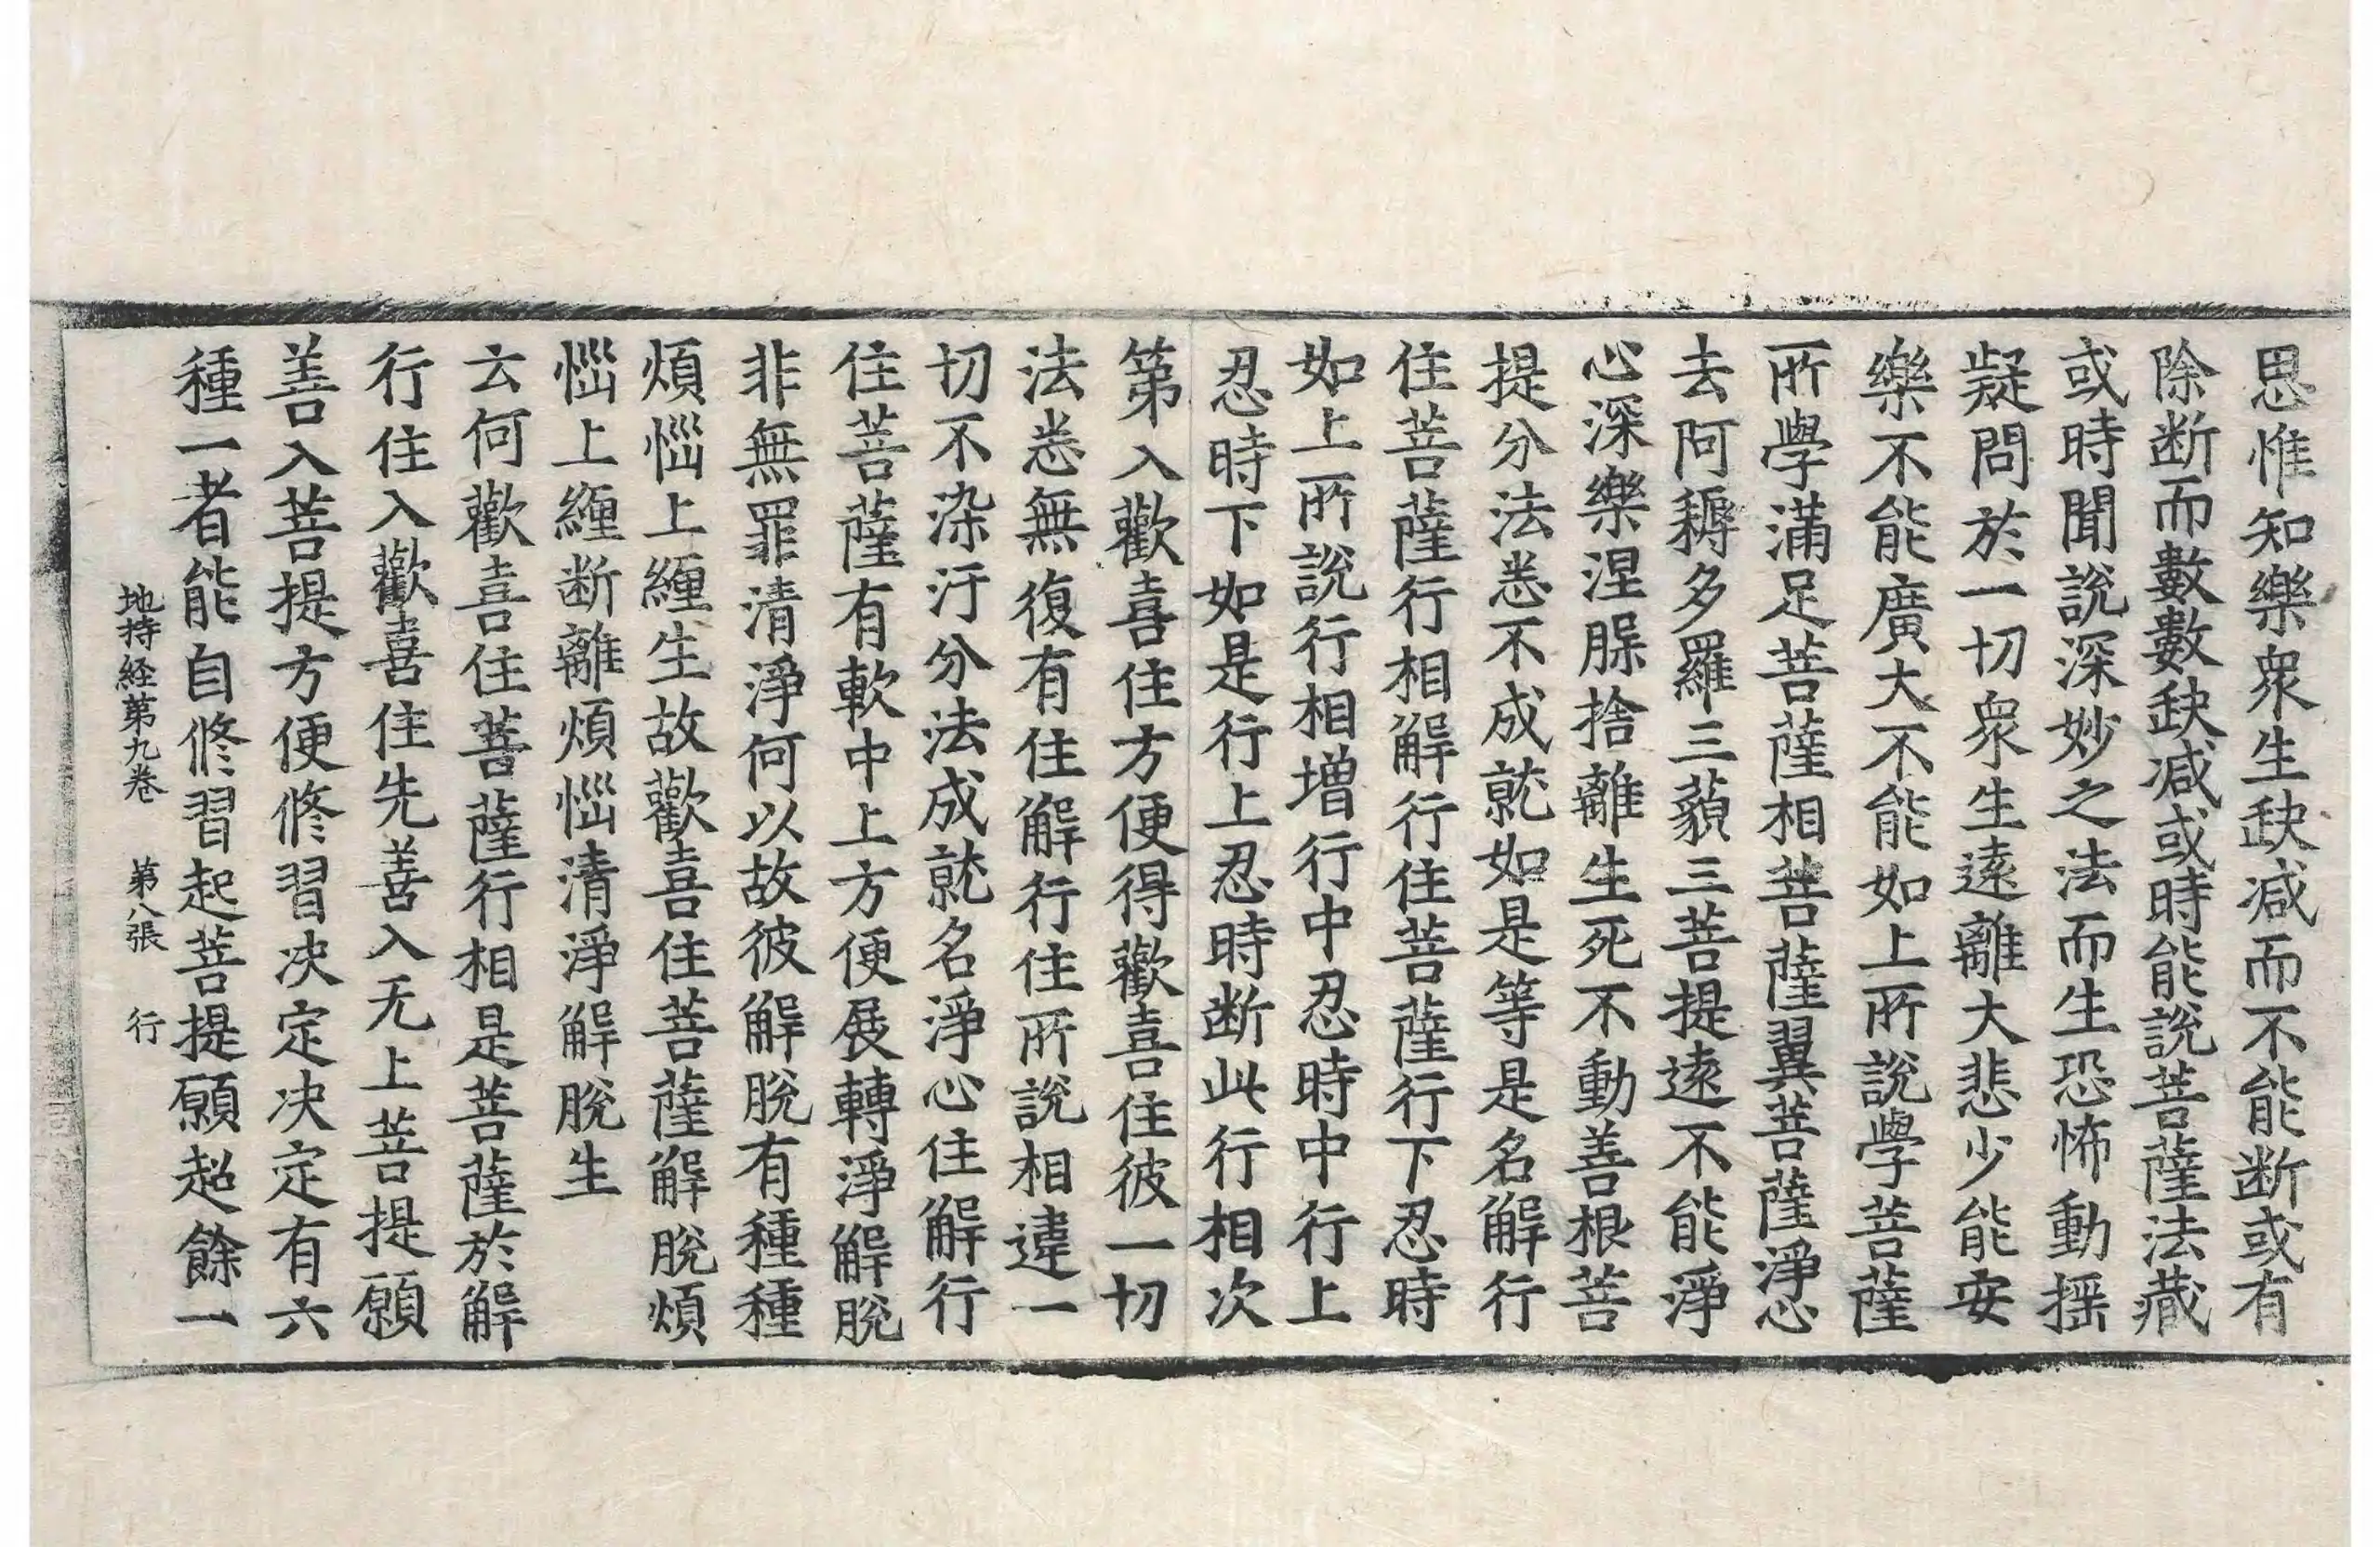 思惟知樂衆生缺減而不能断或有
除断而數數缺減或時能說菩薩法藏
或時聞說深妙之法而生恐怖動揺
疑問於一切衆生遠離大悲少能安
樂不能廣大不能如上所說學菩薩
所學滿足菩薩相菩薩翼菩薩淨心
去阿耨多羅三藐三菩提遠不能淨
心深樂涅槃捨離生死不動善根菩
提分法悉不成就如是等是名解行
住菩薩行相解行住菩薩行下忍時
如上所說行相增行中忍時中行上
忍時下如是行上忍時断此行相次
第入歡喜住方便得歡喜住彼一切
法悉無復有住解行住所說相違一
切不染汙分法成就名淨心住解行
住菩薩有軟中上方便展轉淨解脫
非無罪清淨何以故彼解脫有種種
煩惱上纏生故歡喜住菩薩解脫煩
惱上纏断離煩惱清淨解脫生
云何歡喜住菩薩行相是菩薩於解
行住入歡喜住先善入无上菩提願
善入菩提方便修習決定決定有六
種一者能自修習起菩提願超餘一
地持経第九巻 第八張 行